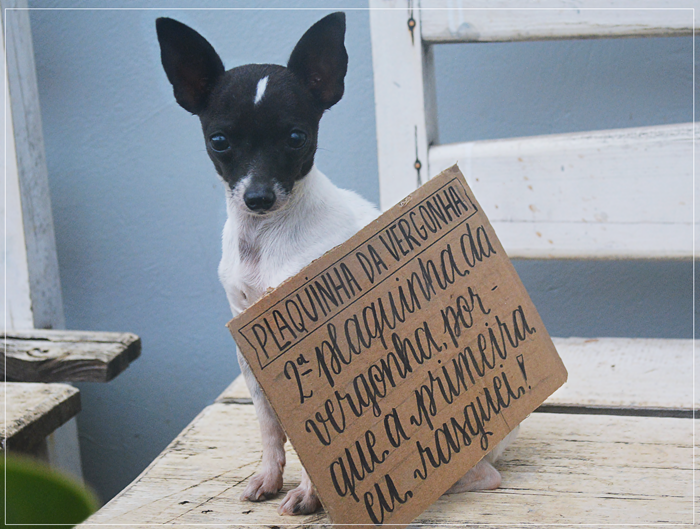 PLAQUINHA DA VERGONHA
2ª plaquinha da
vergonha, por-
que a primeira
eu rasguei!